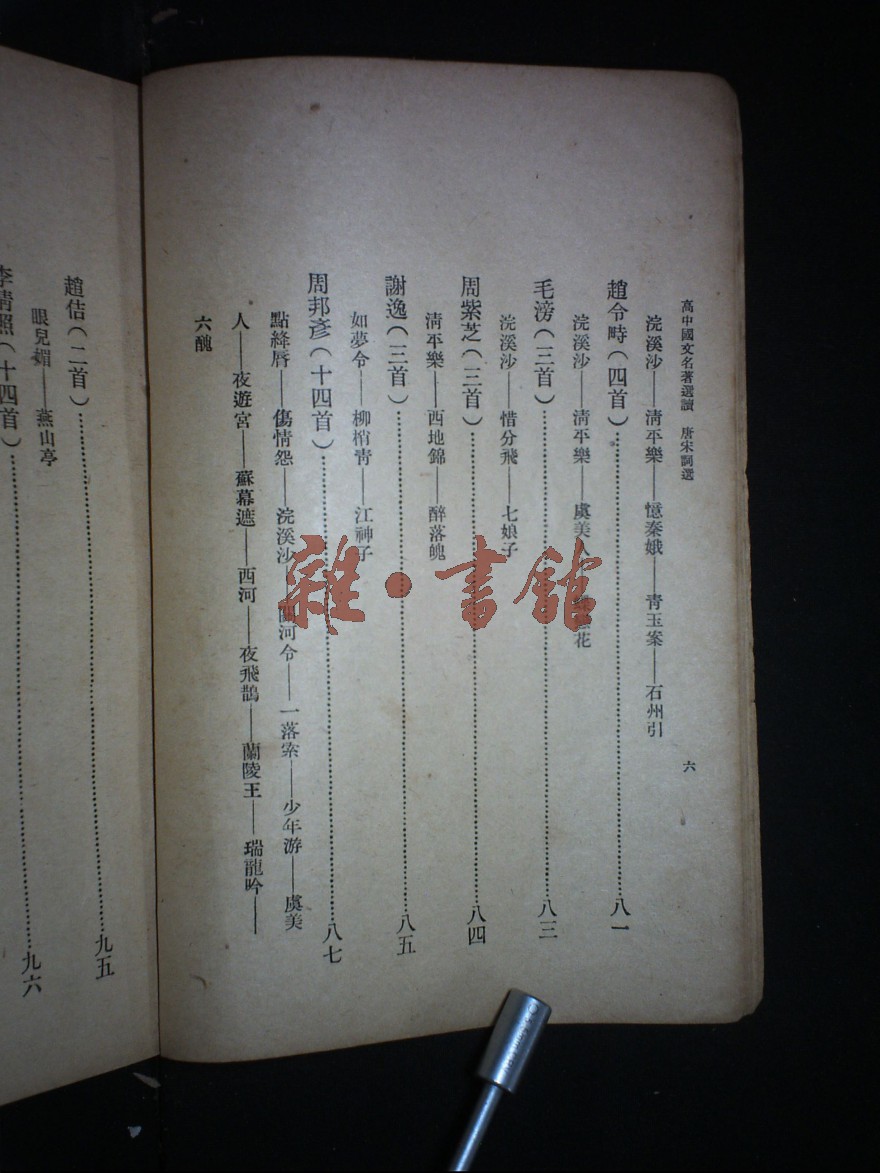 高中國文名著選讀　唐宋詞選
六
浣溪沙——清平樂——憶秦娥——青玉案——石州引
趙令時（四首）……八一
浣溪沙——清平樂——虞美 花
毛滂（三首）……八三
浣溪沙——惜分飛——七娘子
周紫芝（三首）……八四
清平樂——西地錦——醉落魄
謝逸（三首）……八五
如夢令——柳梢青——江神子
周邦彥（十四首）……八七
點絳唇——傷情怨——浣溪沙——關河令——一落索——少年游——虞美
人——夜遊宮——蘇幕遮——西河——夜飛鵲——蘭陵王——瑞龍吟——
六醜
趙佶（二首）……九五
眼兒媚——燕山亭
李清照（十四首）……九六
雜·書館